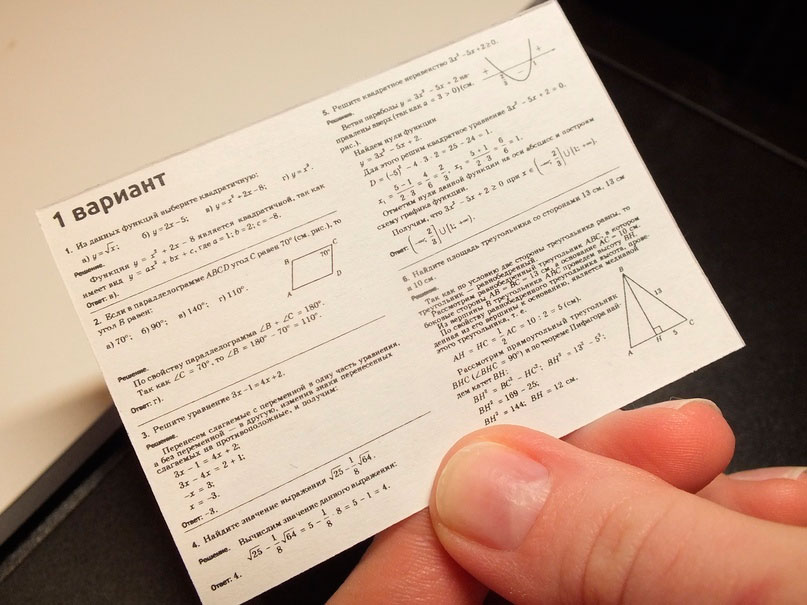 1 вариант
1. Из данных функций выберите квадратичную:
а) y = √x; б) y = 2x – 5; в) y = x² + 2x – 8; г) y = x³.
Решение.
Функция y = x² + 2x – 8 является квадратичной, так как
имеет вид y = ax² + bx + c, где a = 1; b = 2; c = –8.
Ответ: в).
2. Если в параллелограмме ABCD угол C равен 70° (см. рис.), то
угол B равен:
а) 70°; б) 90°; в) 140°; г) 110°.
B
C
70°
A
D
Решение.
По свойству параллелограмма ∠B + ∠C = 180°.
Так как ∠C = 70°, то ∠B = 180° – 70° = 110°.
Ответ: г).
3. Решите уравнение 3x – 1 = 4x + 2.
Решение.
Перенесем слагаемые с переменной в одну часть уравнения,
а без переменной — в другую, изменив знаки перенесенных
слагаемых на противоположные, и получим:
3x – 1 = 4x + 2;
3x – 4x = 2 + 1;
–x = 3;
x = –3.
Ответ: –3.
4. Найдите значение выражения √25 – 1/8 √64.
Решение.
Вычислим значение данного выражения:
√25 – 1/8 √64 = 5 – 1/8 · 8 = 5 – 1 = 4.
Ответ: 4.
5. Решите квадратное неравенство 3x² – 5x + 2 ≥ 0.
Решение.
Ветви параболы y = 3x² – 5x + 2 на-
правлены вверх (так как a = 3 > 0) (см.
рис.).
+
2/3
–
1
+
Найдем нули функции
y = 3x² – 5x + 2.
Для этого решим квадратное уравнение 3x² – 5x + 2 = 0.
D = (–5)² – 4 · 3 · 2 = 25 – 24 = 1.
x₁ = (5 – 1)/(2 · 3) = 4/6 = 2/3, x₂ = (5 + 1)/(2 · 3) = 6/6 = 1.
Отметим нули данной функции на оси абсцисс и построим
схему графика функции.
Получим, что 3x² – 5x + 2 ≥ 0 при x ∈ (–∞; 2/3] ∪ [1; +∞).
Ответ: (–∞; 2/3] ∪ [1; +∞).
6. Найдите площадь треугольника со сторонами 13 см, 13 см
и 10 см.
Решение.
Так как по условию две стороны треугольника равны, то
треугольник — равнобедренный.
Рассмотрим равнобедренный треугольник ABC, в котором
боковые стороны AB = BC = 13 см, а основание AC = 10 см.
Из вершины B треугольника ABC проведем высоту BH.
По свойству равнобедренного треугольника высота, прове-
денная из его вершины к основанию, является медианой
этого треугольника, т. е.
AH = HC = 1/2 AC = 10 : 2 = 5 (см).
Рассмотрим прямоугольный треугольник
BHC (∠BHC = 90°) и по теореме Пифагора най-
дем катет BH:
BH² = BC² – HC²; BH² = 13² – 5²;
BH² = 169 – 25;
BH² = 144; BH = 12 см.
B
13
A
H
5
C